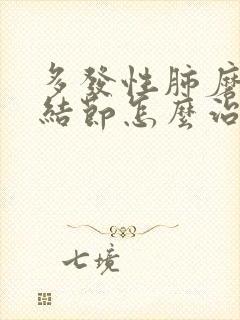 多發性肺磨
結節怎麼治
七境